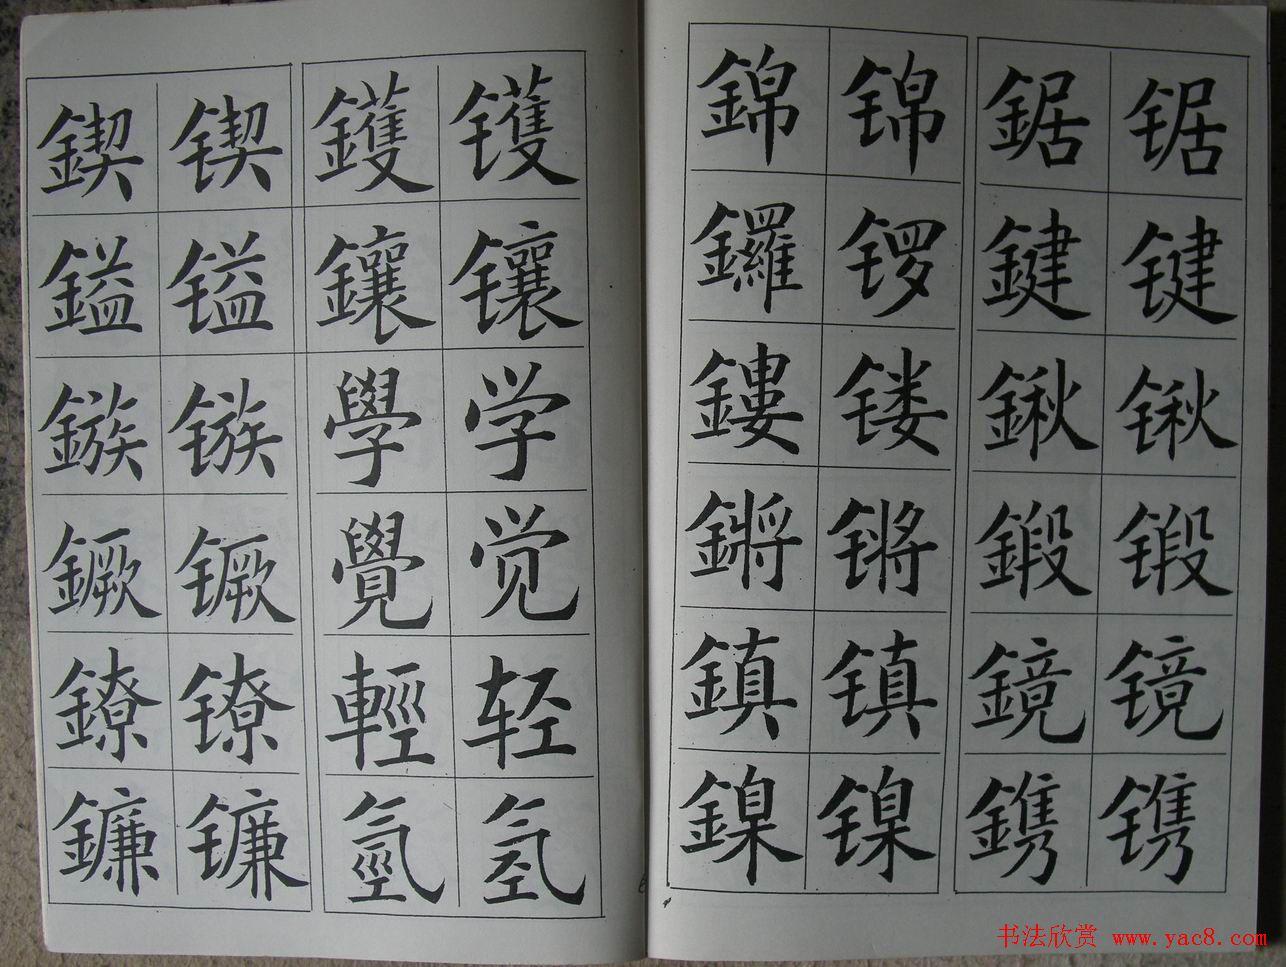 鍥 锲 鑊 镬
鎰 镒 鑲 镶
鏃 镞 學 学
鐝 镢 覺 觉
鐐 镣 輕 轻
鐮 镰 氫 氢
錦 锦 鋸 锯
鑼 锣 鍵 键
鏤 镂 鍬 锹
鏘 锵 鍛 锻
鎮 镇 鏡 镜
鎳 镍 鐫 镌
书法欣赏 www.yac8.com